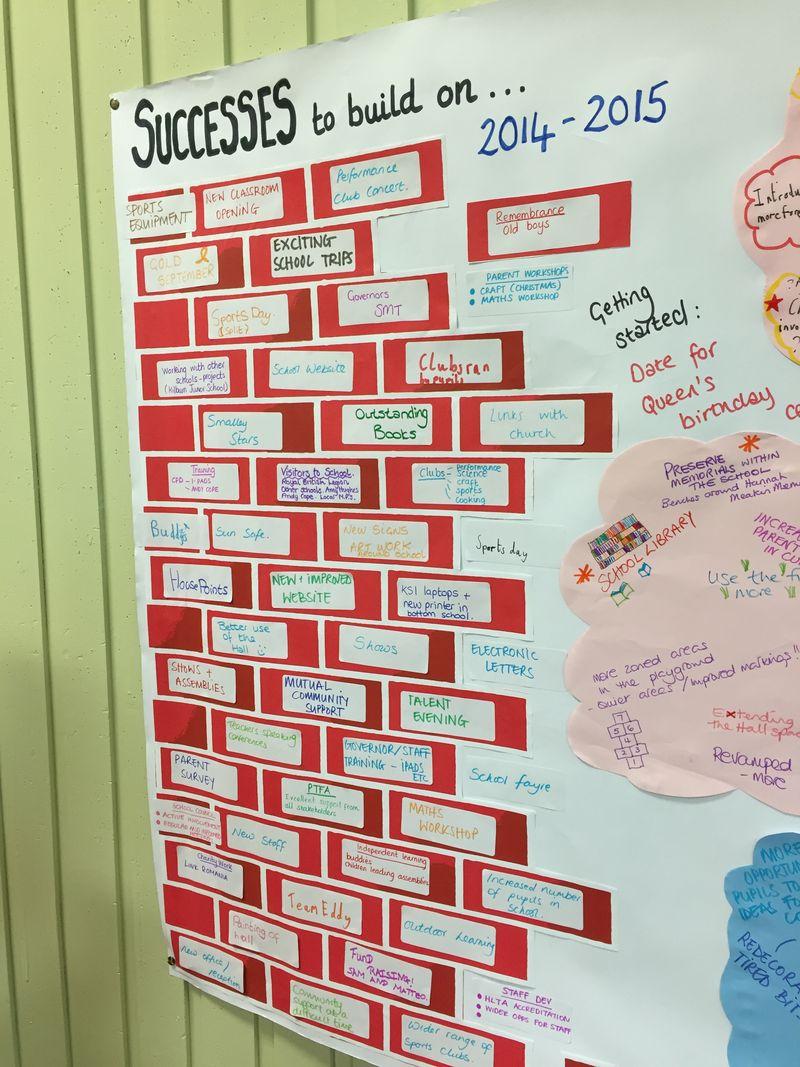 SUCCESSES to build on ...
2014-2015
SPORTS
EQUIPMENT
NEW CLASSROOM
OPENING
Performance
Club Concert.
Remembrance
Old boys
GOLD
SEPTEMBER
EXCITING
SCHOOL TRIPS
PARENT WORKSHOPS
• CRAFT (CHRISTMAS)
• MATHS WORKSHOP
Sports Day
(split)
Governors
SMT
Working with other
schools-projects
(Kilburn Junior School)
School Website
Clubs ran
by pupils
Smalley
Stars
Outstanding
Books
Links with
church
Training
CPD - IPADS
ANDY COPE
Visitors to School.
Royal British Legion
Other schools. Amy Hughes
Andy Cope. Local M.P's.
Clubs - Performance
Science
craft
sports
cooking
Buddies
Sun Safe.
NEW SIGNS
ART WORK
AROUND SCHOOL
Sports day
House Points
NEW + IMPROVED
WEBSITE
KS1 laptops +
new printer in
bottom school.
Better use
of the
Hall
Shows
ELECTRONIC
LETTERS
SHOWS +
ASSEMBLIES
MUTUAL
COMMUNITY
SUPPORT
TALENT
EVENING
Teachers speaking
conferences
GOVERNOR/STAFF
TRAINING - IPADS
ETC
PARENT
SURVEY
PTFA
Excellent support from
all stakeholders
School fayre
MATHS
WORKSHOP
SCHOOL COUNCIL
• ACTIVE INVOLVEMENT
• REGULAR
New Staff
Independent learning
buddies
children leading assemblies
Charity Work
LINK ROMANIA
Increased number
of pupils in
School.
Team Eddy
Painting of
hall
Outdoor Learning
New office/
reception
FUND
RAISING!
SAM AND MATTEO.
Community
support at a
difficult time
STAFF DEV
• HLTA ACCREDITATION
• WIDER OPPS FOR STAFF
•
Wider range of
Sports Clubs.
Getting
started:
Date for
Queen's
birthday
more
PRESERVE
MEMORIALS WITHIN
THE SCHOOL
Benches around Hannah
Meakin
SCHOOL LIBRARY
PARENT
IN
Use the
more
More zoned areas
in the playground
- Quiet areas / Improved markings!!
1
2
3
4
5 6
7
Extending
the Hall
Revamped
- more
MORE
PUPILS TO
IDEAS
TIRED